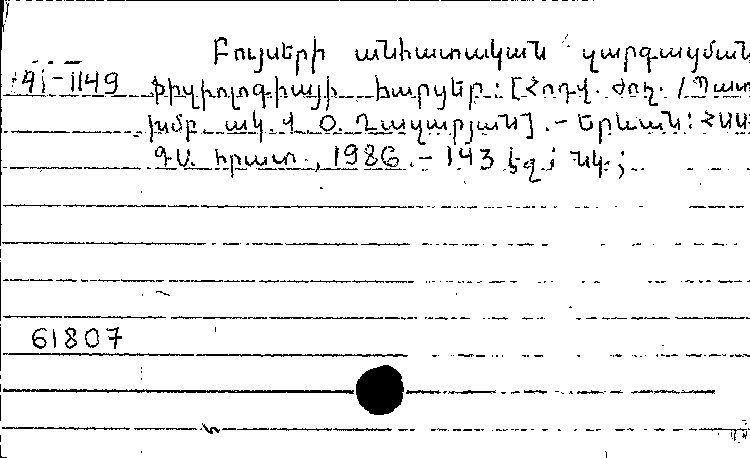 Բույսերի անհատական զարգացման
41-1149 ֆիզիոլոգիայի հարցեր: [Հոդվ. ժող. / Պատ.
խմբ. ակ. Վ. Օ. Ղազարյան]. - Երևան: ՀՍՍՀ
ԳԱ հրատ., 1986. - 143 էջ; նկ.;
61807